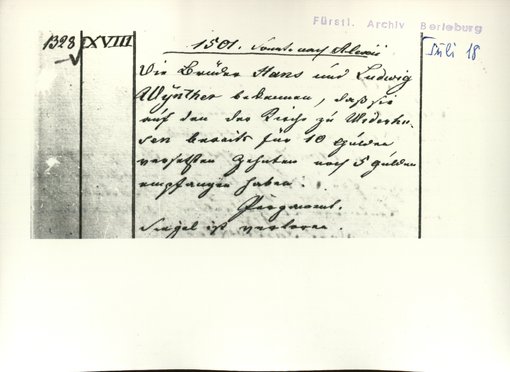 Fürstl. Archiv Berleburg
Juli 18
1328 XVIII
1501. Sonnt. nach Alexii
Die Brüder Hans und Ludwig
Wÿnther bekennen, daß sie
auf den der Kirche zu
bereits für 10 Gulden
versetzten Zehnten noch 5 Gulden
empfangen haben.
Pergament.
Siegel ist verloren.